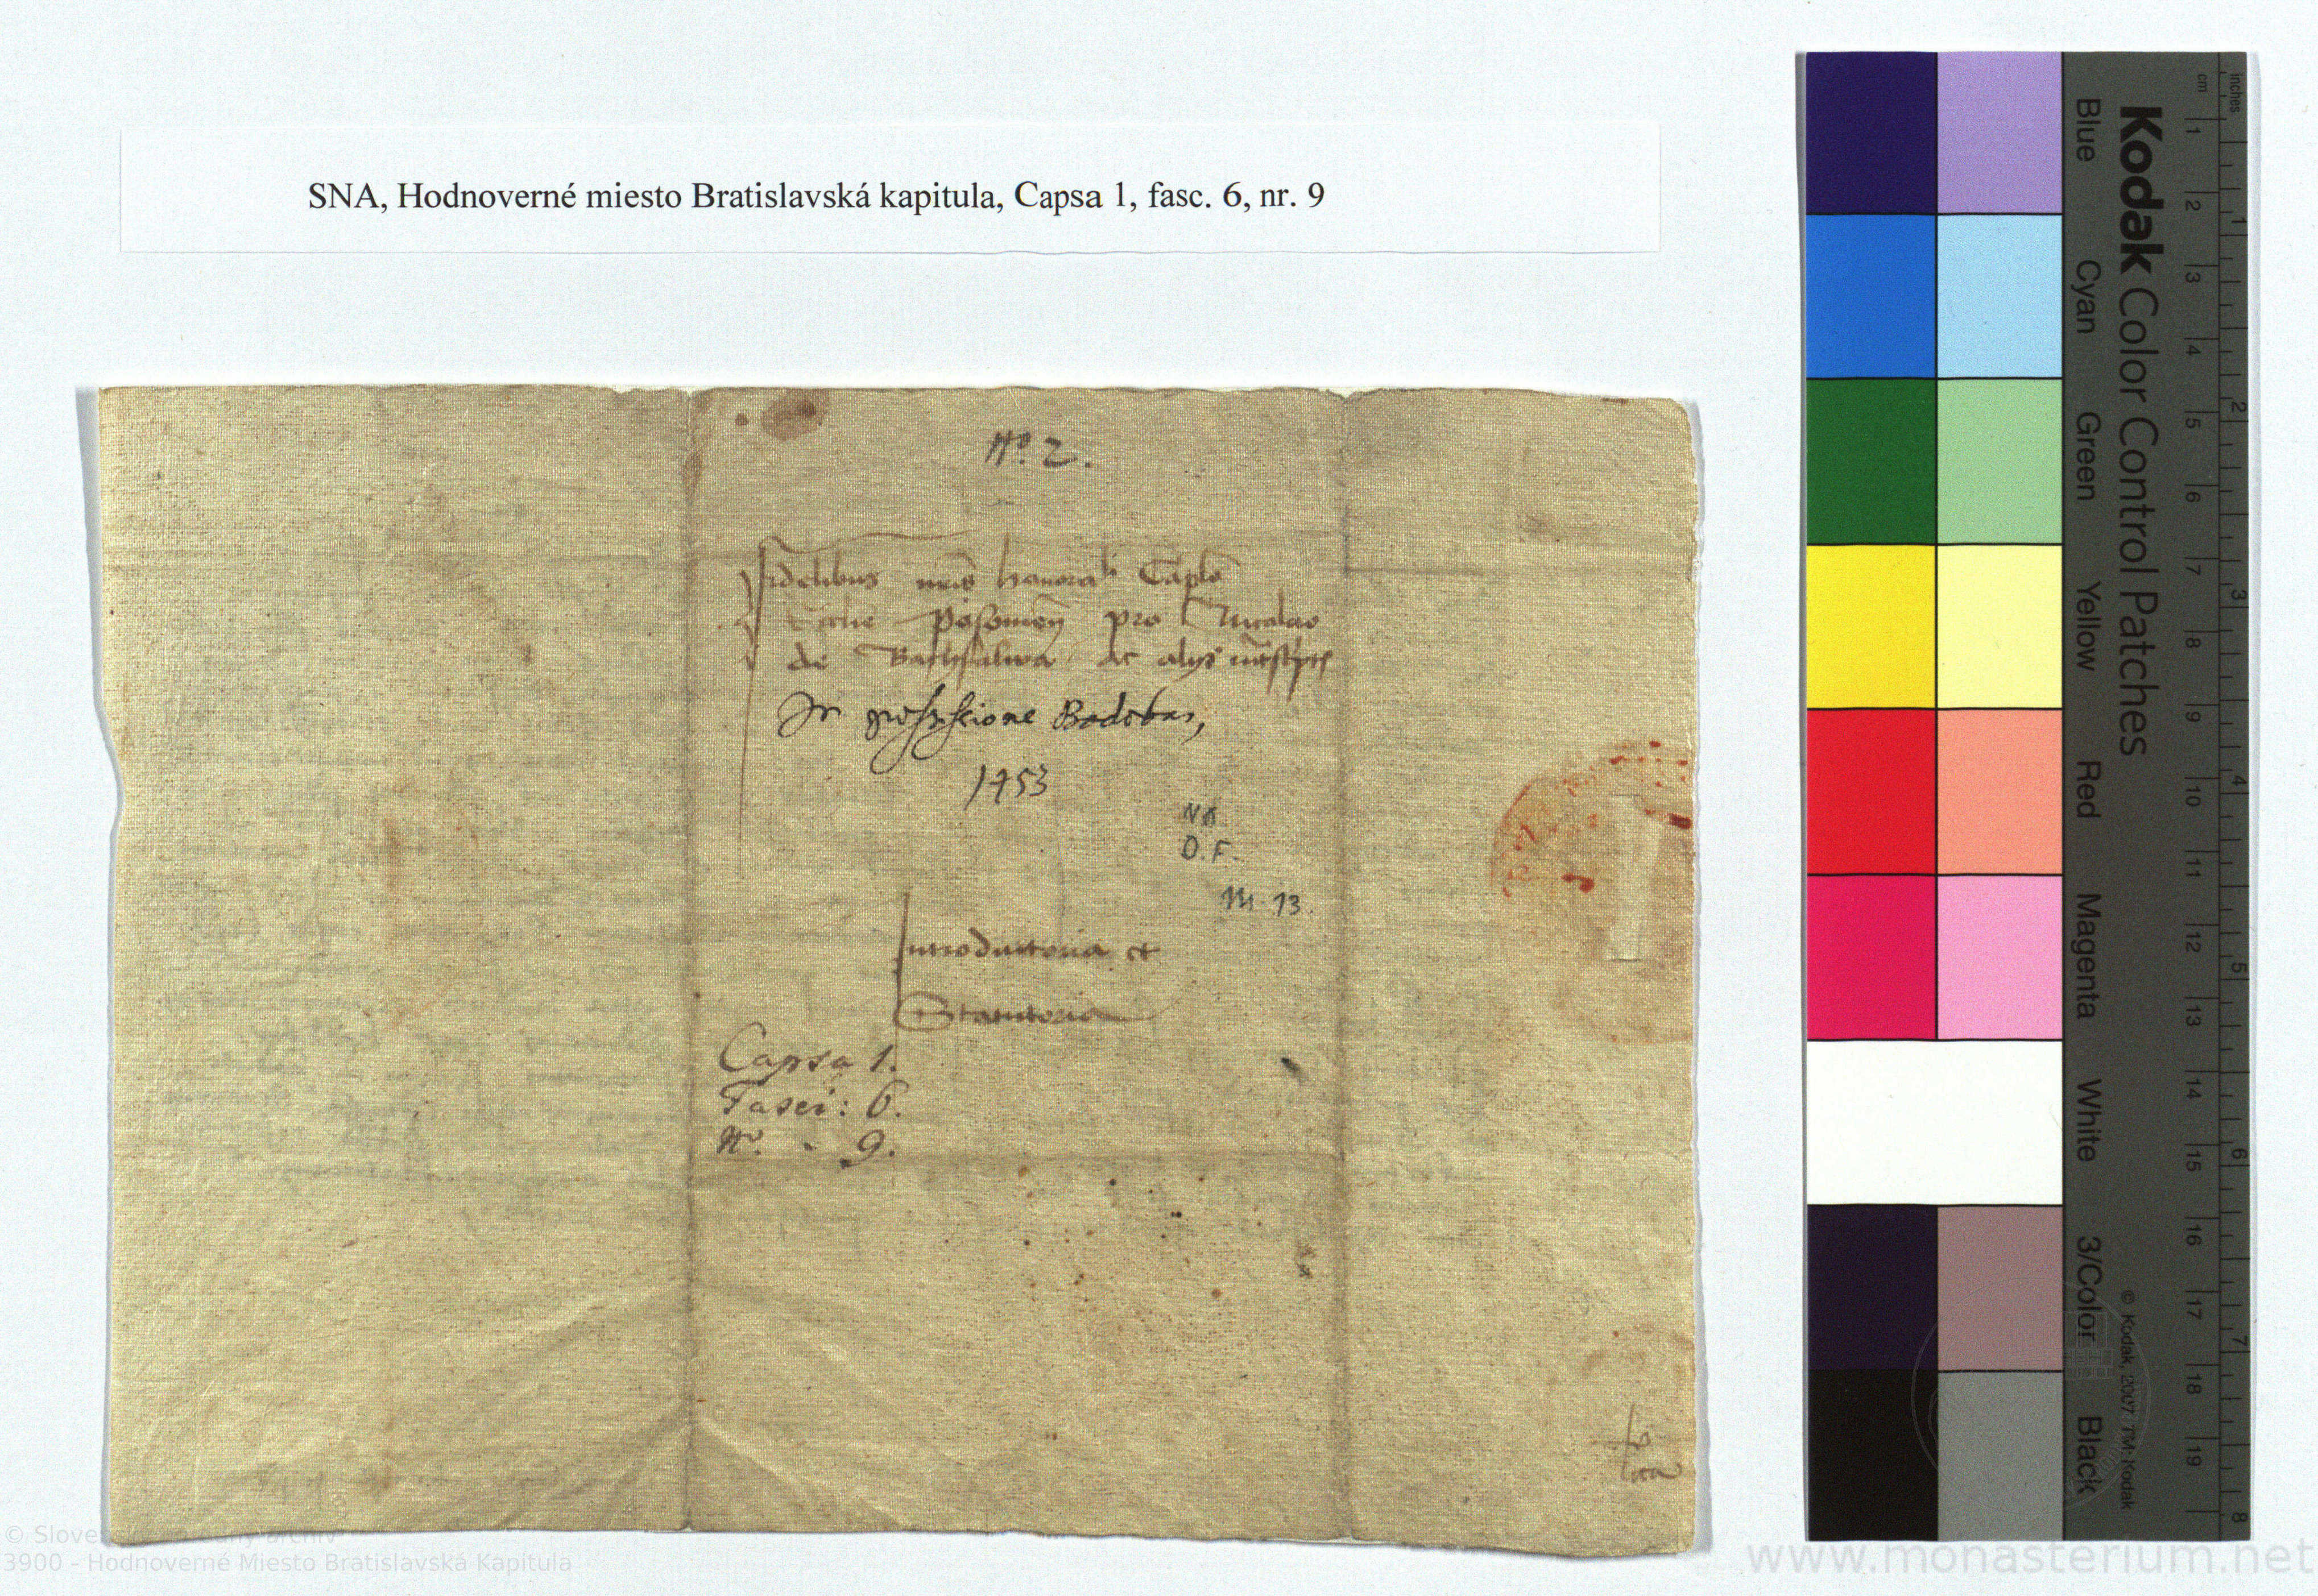 SNA, Hodnoverné miesto Bratislavská kapitula, Capsa 1, fasc. 6, nr. 9
Nº. 2.
Fidelibus
Posonien pro Nicolao
de ac alys
In possessione Bodobar,
1453
D. F.
13.
Introductoria et
Statutoria
Capsa 1.
Fasci: 6.
Nº. - 9.
Kodak Color Control Patches
Blue Cyan Green Yellow Red Magenta White 3/Color Black
© Kodak, 2007 TM: Kodak
cm 1 2 3 4 5 6 7 8 9 10 11 12 13 14 15 16 17 18 19
inches 1 2 3 4 5 6 7 8
© Slovenský národný archív
3900 - Hodnoverné Miesto Bratislavská Kapitula
www.monasterium.net